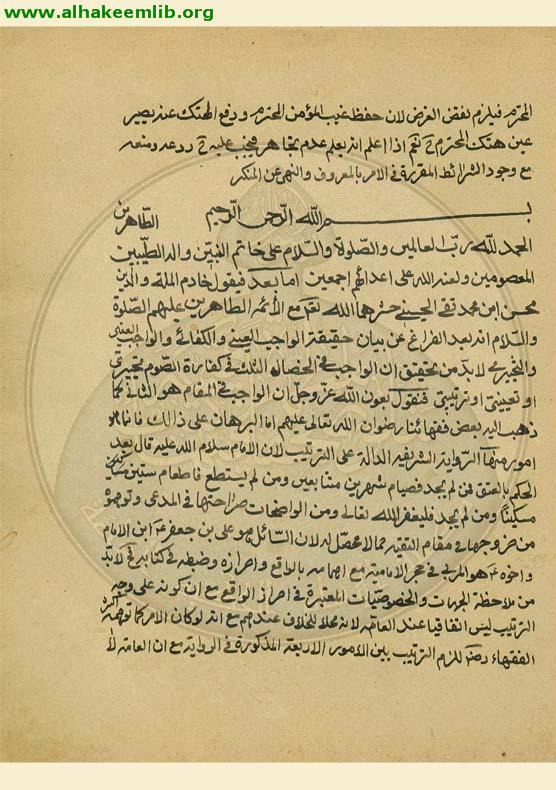 www.alhakeemlib.org
المحترم فيلزم نقض الغرض لان حفظ غيب المؤمن المحترم ودفع الهتك عنه يصير
عين هتك المحترم نعم اذا اعلم انه يعلم عدم تجاهره فيجب عليه ردعه ومنعه
مع وجود الشرائط المقررة فى الامر بالمعروف والنهى عن المنكر
بسم الله الرحمن الرحيم الطاهرين
الحمد لله رب العالمين والصلوة والسلام على خاتم النبيين واله الطيبين
المعصومين ولعنة الله على اعدائهم اجمعين اما بعد فيقول خادم الملة والدين
محسن ابن محمد تقى الحسينى حشرهما الله تعالى مع الأئمة الطاهرين عليهم الصلوة
والسلام انه بعد الفراغ عن بيان حقيقة الواجب العينى والكفائى والواجب التعيينى
والتخييرى لا بد من تحقيق ان الواجب فى الخصال الثلث فى كفارة الصوم تخييرى
او تعيينى او ترتيبى فنقول بعون الله عز وجل ان الواجب فى المقام هو الثانى كما
ذهب اليه بعض فقهائنا رضوان الله تعالى عليهم اما البرهان على ذالك فانما هو
امور منها الرواية الشريفة الدالة على الترتيب لان الامام سلام الله عليه قال بعد
الحكم بالعتق فمن لم يجد فصيام شهرين متتابعين ومن لم يستطع فاطعام ستين
مسكينا ومن لم يجد فليستغفر الله تعالى ومن الواضحات صراحتها فى المدعى وتوهم
من خروجها فى مقام التقية مما لا محصل له لان السائل هو على بن جعفر ابن الامام
واخوه هو المربى فى حجر الامامة مع اهتمامه بالواقع واحرازه وضبطه فى كتابه فلا بد
من ملاحظة الجهات والخصوصيات المعتبرة فى احراز الواقع مع ان كونه على وجه
الترتيب ليس اتفاقيا عند العامة لانه محلا للخلاف عندهم مع انه لو كان الامر كما توهمه اكثر
الفقهاء للزم الترتيب بين الامور الاربعة المذكورة فى الرواية مع ان العامة لا